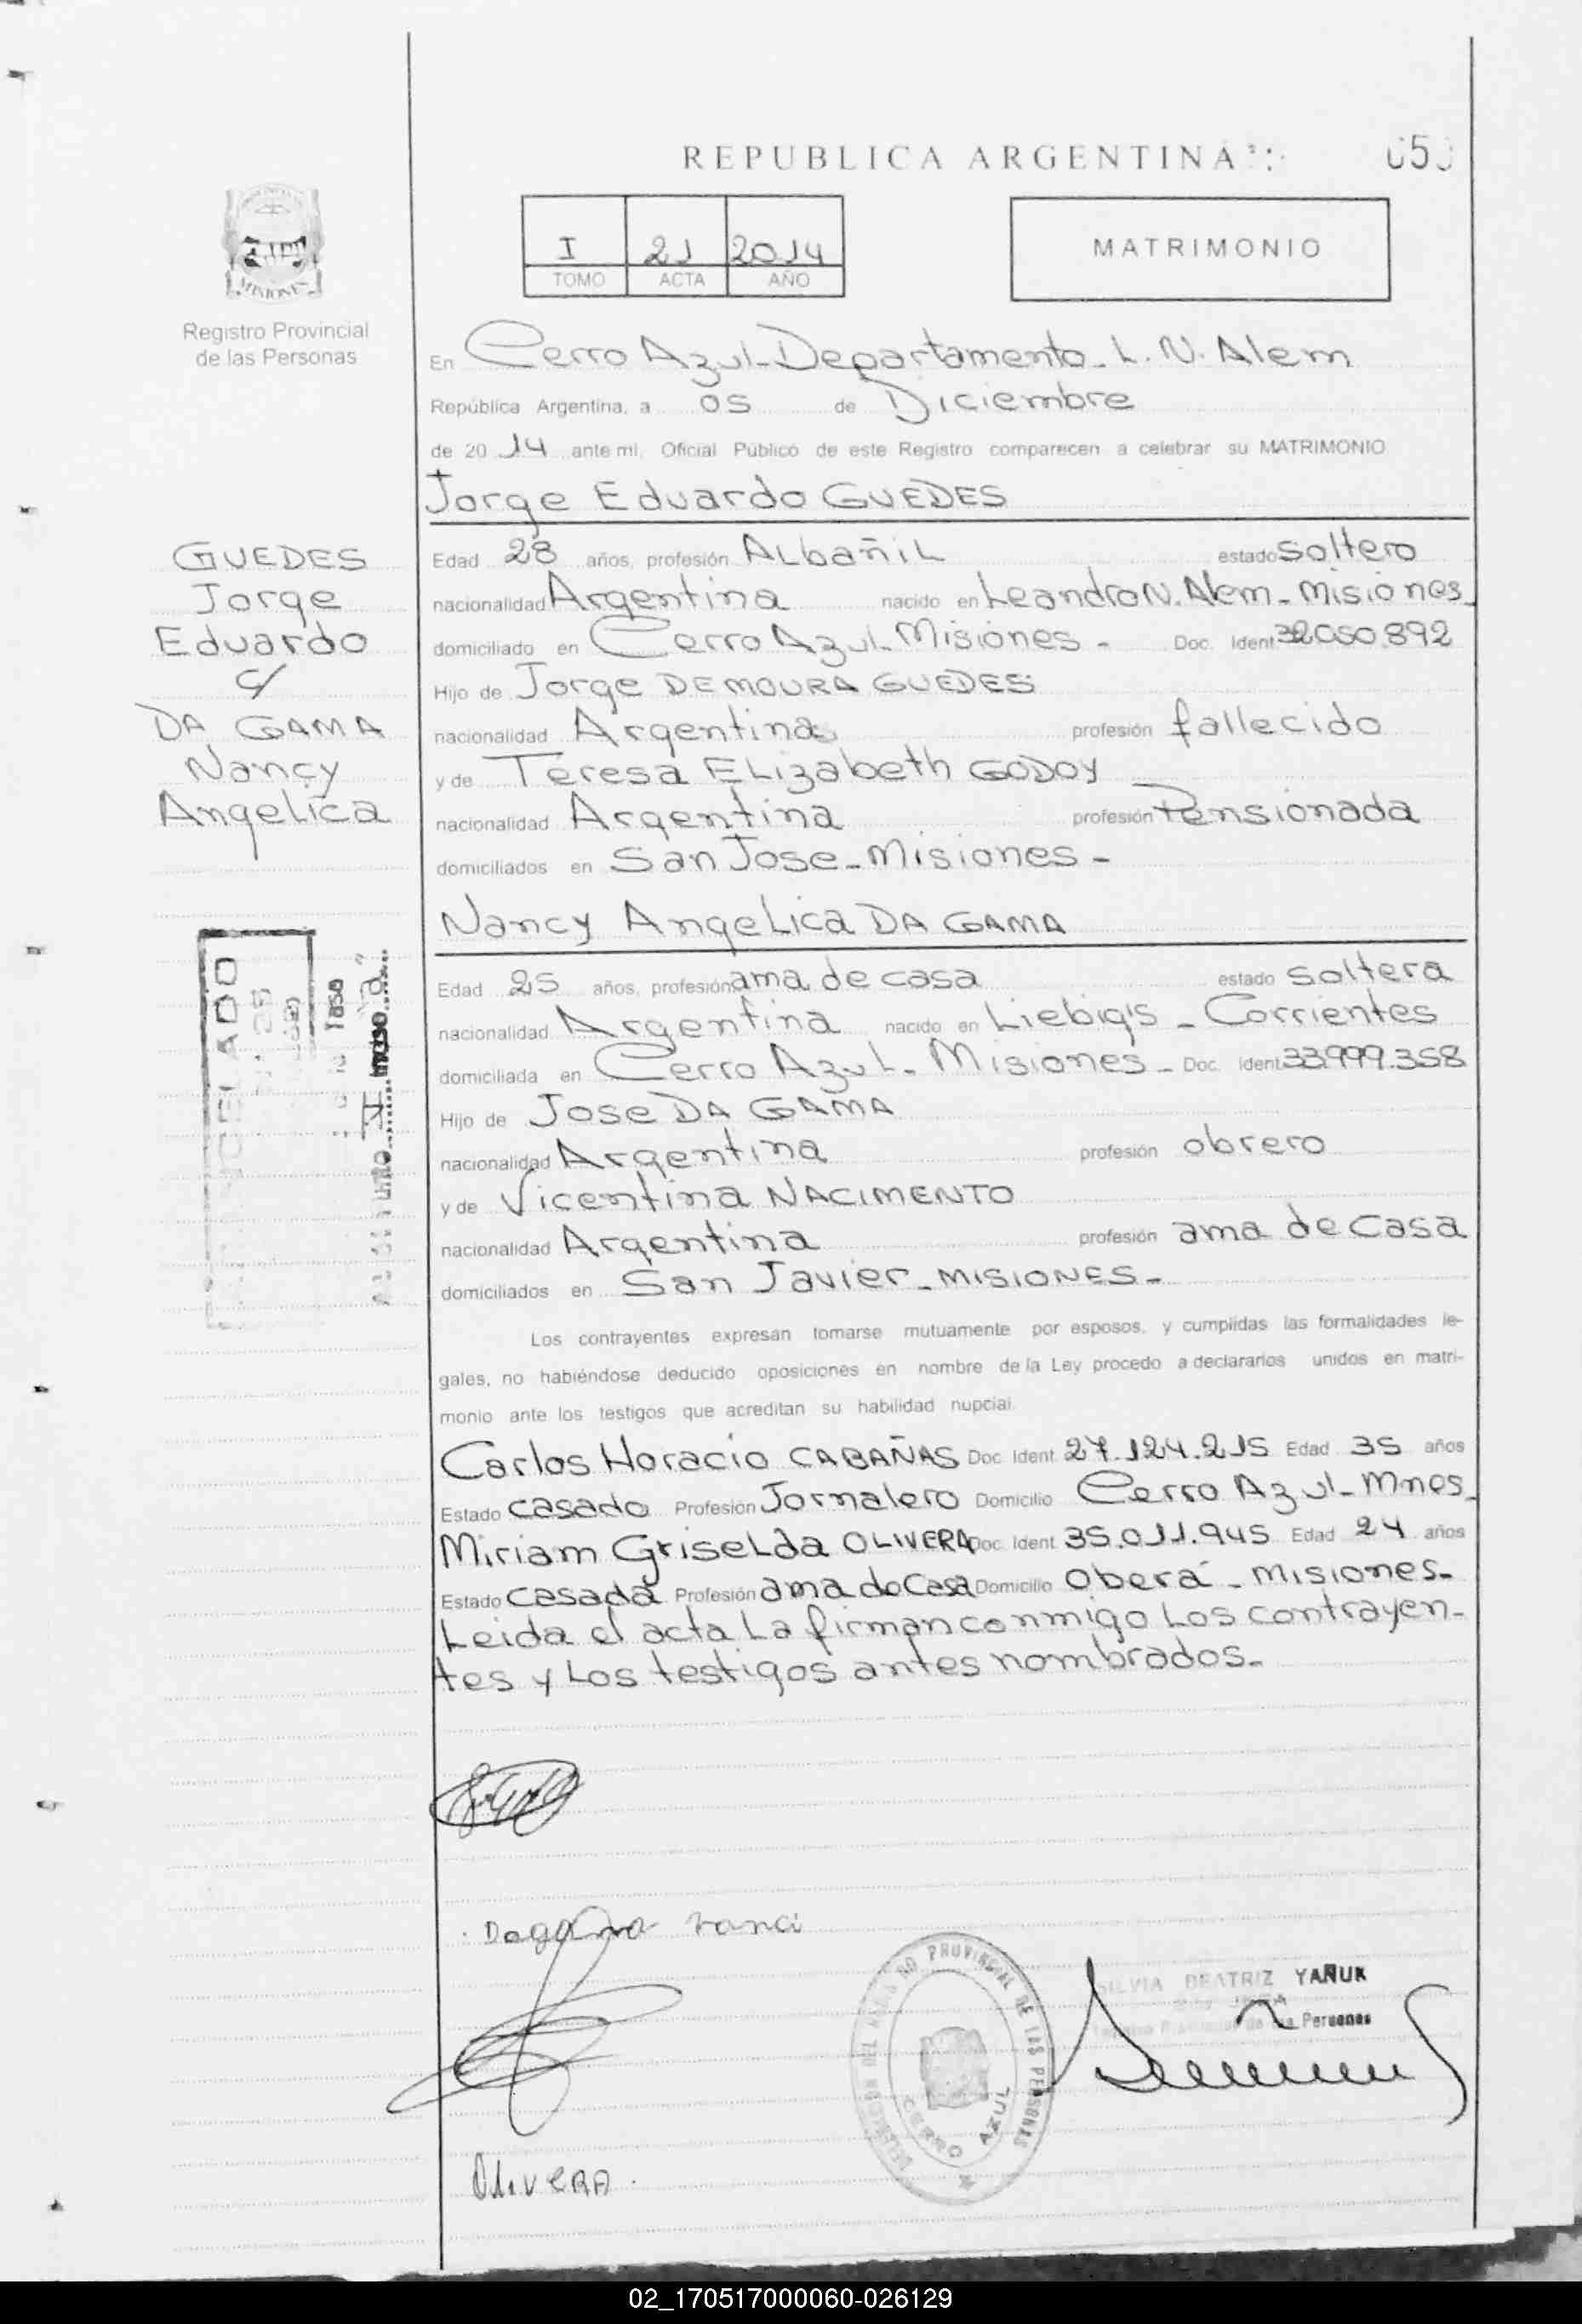 REPUBLICA ARGENTINA
I 21 2014
TOMO ACTA AÑO
MATRIMONIO
MISIONES
Registro Provincial
de las Personas
En Cerro Azul-Departamento-L.N.Alem
República Argentina, a 05 de Diciembre
de 2014 ante mi, Oficial Público de este Registro comparecen a celebrar su MATRIMONIO
Jorge Eduardo GUEDES
GUEDES
Jorge
Eduardo
c/
DA GAMA
Nancy
Angelica
Edad 28 años, profesión ALbañiL estado soltero
nacionalidad Argentina nacido en Leandro N. Alem-Misiones
domiciliado en Cerro Azul-Misiones- Doc. Ident 32.050.892
Hijo de Jorge DEMOURA GUEDES
nacionalidad Argentina profesión fallecido
y de Teresa ELizabeth GODOY
nacionalidad Argentina profesión Pensionada
domiciliados en San Jose-Misiones-
Nancy AngeLica DA GAMA
Edad 25 años, profesión ama de casa estado soltera
nacionalidad Argentina nacido en Liebig's - Corrientes
domiciliada en Cerro AzuL-Misiones- Doc. Ident 33.999.358
Hijo de Jose DA GAMA
nacionalidad Argentina profesión obrero
y de Vicentina NACIMENTO
nacionalidad Argentina profesión ama de casa
domiciliados en San Javier-MISIONES-
Los contrayentes expresan tomarse mutuamente por esposos, y cumplidas las formalidades le-
gales, no habiéndose deducido oposiciones en nombre de la Ley procedo a declararlos unidos en matri-
monio ante los testigos que acreditan su habilidad nupcial.
Carlos Horacio CABAÑAS Doc. Ident. 27.124.215 Edad 35 años
Estado casado Profesión Jornalero Domicilio Cerro Azul-Mnes-
Miriam GriseLda OLIVERA Doc. Ident. 35.011.945 Edad 24 años
Estado casada Profesión ama de Casa Domicilio Oberá-Misiones-
Leida el acta La firman conmigo Los contrayen-
tes y Los testigos antes nombrados-
Dagama Nanci
SILVIA BEATRIZ YAÑUK
Personas
PROVINCIAL DE LAS PERSONAS
CERRO AZUL
OLIVERA.
02_170517000060-026129